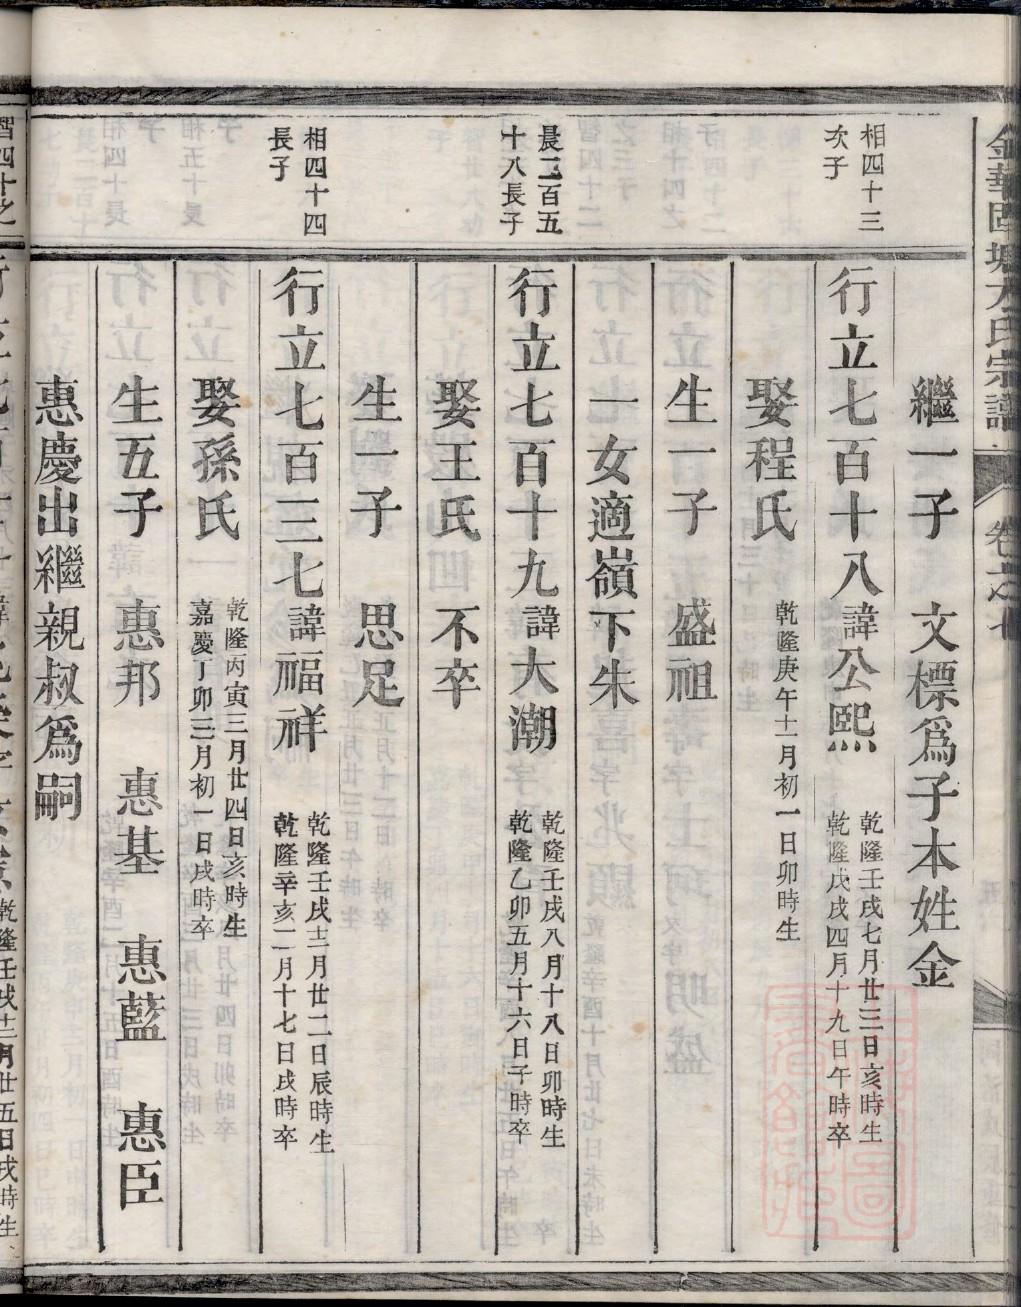 繼一子 文標爲子本姓金
相四十三
次子
行立七百十八諱公熙 乾隆壬戌七月廿三日亥時生
乾隆戊戌四月十九日午時卒
娶程氏 乾隆庚午十一月初一日卯時生
生一子 盛祖
一女適嶺下朱
晨二百五
十八長子
行立七百十九諱大潮 乾隆壬戌八月十八日卯時生
乾隆乙卯五月十六日子時卒
娶王氏 不卒
生一子 思足
相四十四
長子
行立七百二七諱福祥 乾隆壬戌十二月廿二日辰時生
乾隆辛亥二月十七日戌時卒
娶孫氏 乾隆丙寅三月廿四日亥時生
嘉慶丁卯三月初一日戌時卒
生五子 惠邦 惠基 惠藍 惠臣
惠慶出繼親叔爲嗣